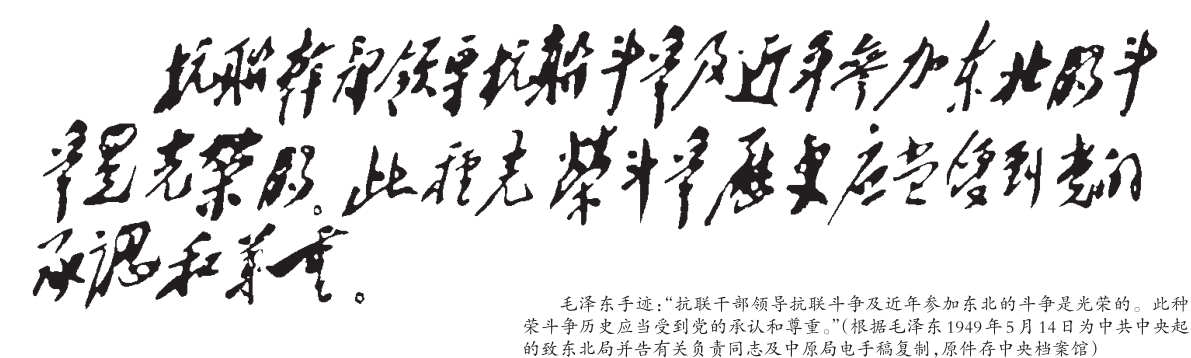 抗联幹部领导抗联斗爭及近年參加东北的斗
爭是光荣的。此種光榮斗爭歷史应当受到党的
承認和尊重。
毛泽东手迹:“抗联干部领导抗联斗争及近年参加东北的斗争是光荣的。此种
荣斗争历史应当受到党的承认和尊重。”(根据毛泽东1949年5月14日为中共中央起
的致东北局并告有关负责同志及中原局电手稿复制,原件存中央档案馆)